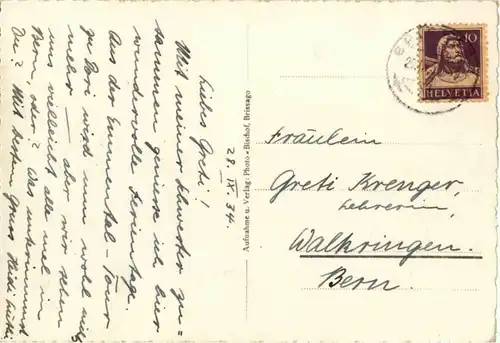 28. IX. 34.
Liebes Greti!
Mit meiner Schwester zu=
sammen geniesse ich hier
wundervolle Ferientage.
Aus der Emmental-Tour
zu Dori wird nun wohl nichts
mehr — aber wir sehen
uns vielleicht alle mal in
Bern, oder? Was unternimmst
Du? Mit besten Gruss Heidi
Aufnahme u. Verlag: Photo-Bischof, Brissago
10
HELVETIA
Fräulein
Greti Krenger,
Lehrerin,
Walkringen.
Bern.